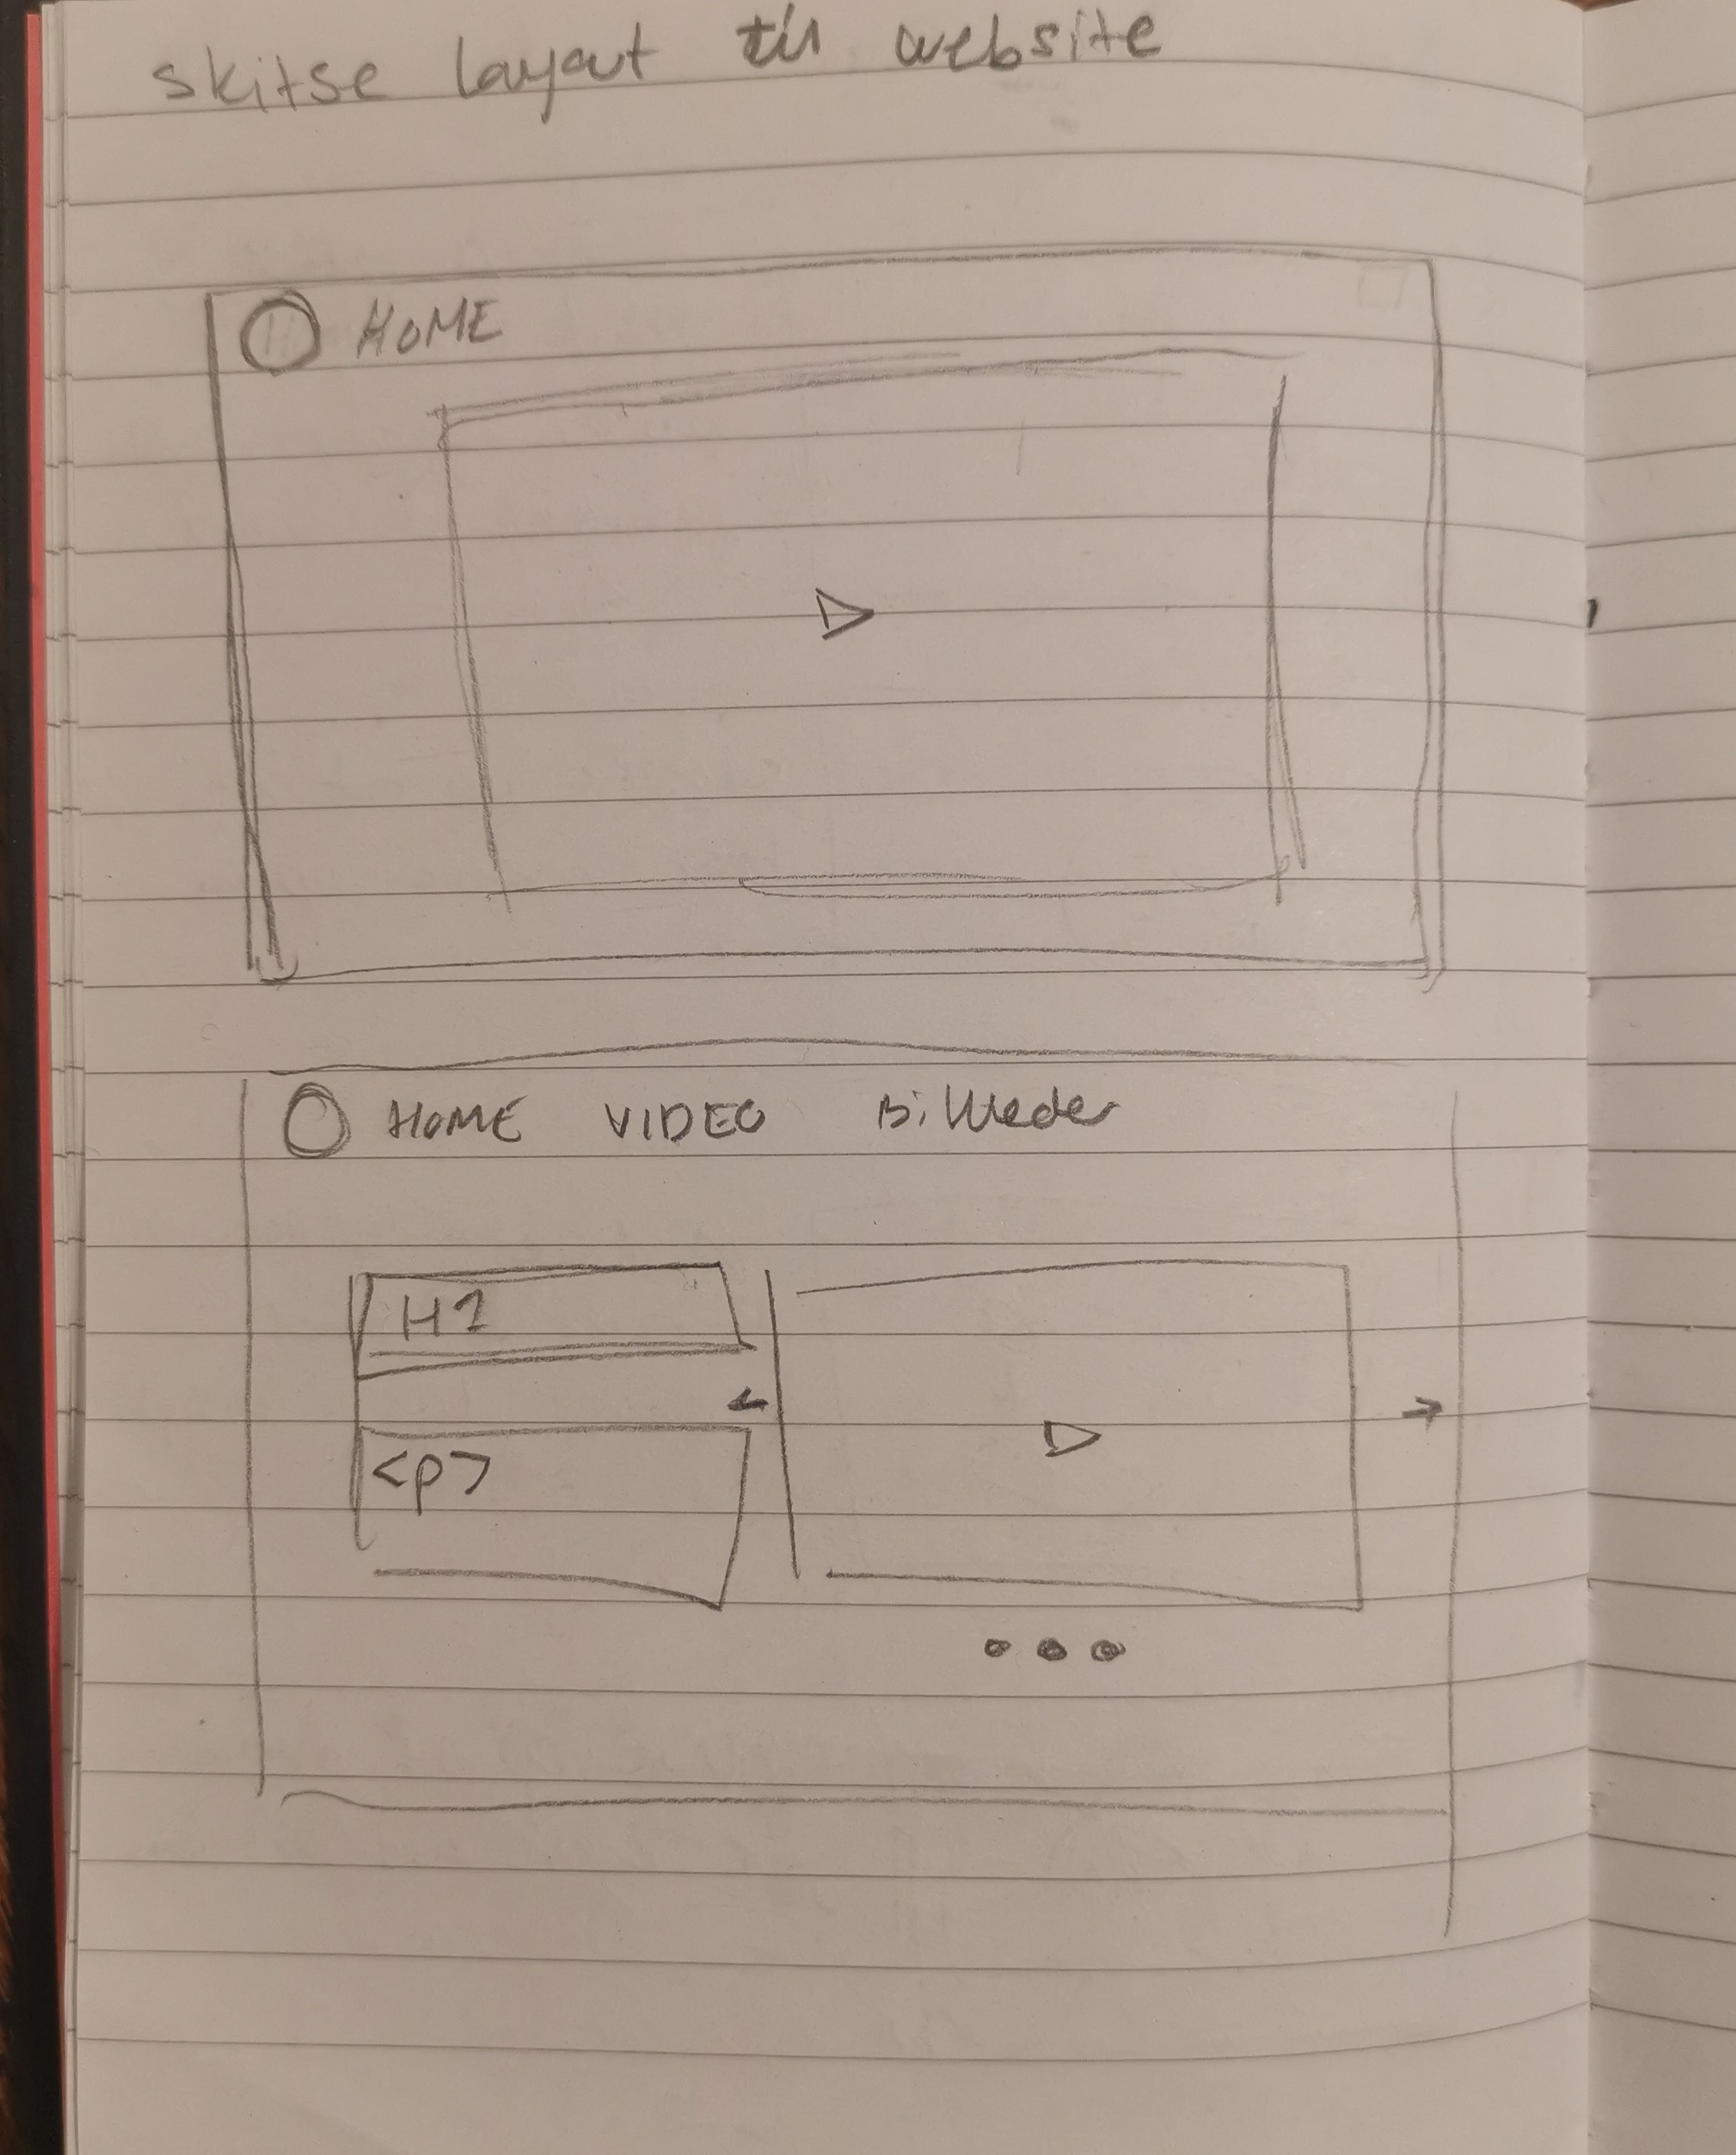 skitse layout til website
HOME
HOME VIDEO Billeder
H1
<p>